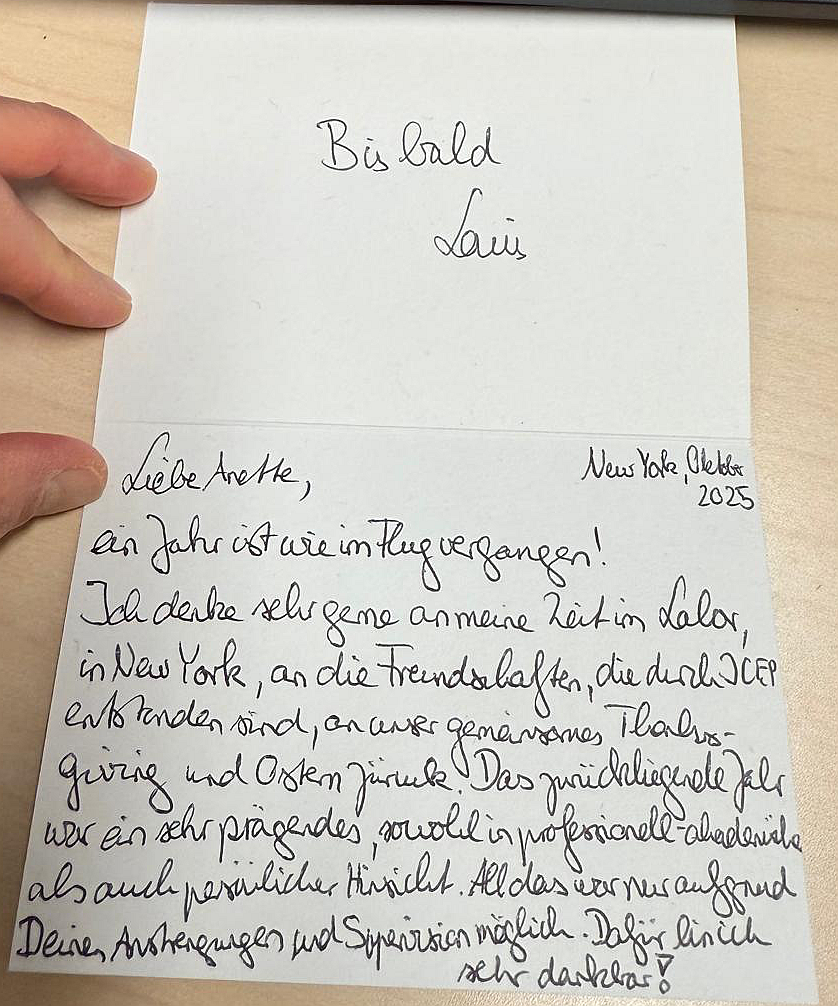 Bis bald
Louis
Liebe Anette,
New York, Oktober
2025
ein Jahr ist wie im Flug vergangen!
Ich denke sehr gerne an meine Zeit im Labor,
in New York, an die Freundschaften, die durch ICEP
entstanden sind, an unser gemeinsames Thanks-
giving und Ostern zurück! Das zurückliegende Jahr
war ein sehr prägendes, sowohl in professionell-akademische
als auch persönlicher Hinsicht. All das war nur aufgrund
Deinen Anstrengungen und Supervision möglich. Dafür bin ich
sehr dankbar!